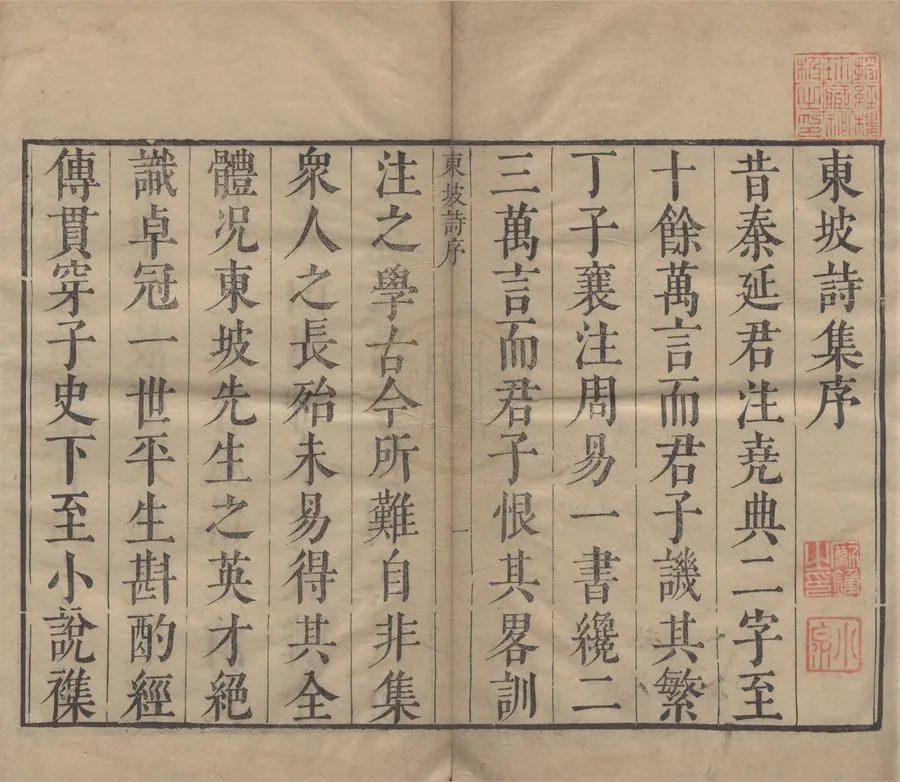 東坡詩集序
昔秦延君注堯典二字至
十餘萬言而君子譏其繁
丁子襄注周易一書纔二
三萬言而君子恨其畧訓
東坡詩序
一
注之學古今所難自非集
衆人之長殆未易得其全
體况東坡先生之英才絕
識卓冠一世平生斟酌經
傳貫穿子史下至小說襍